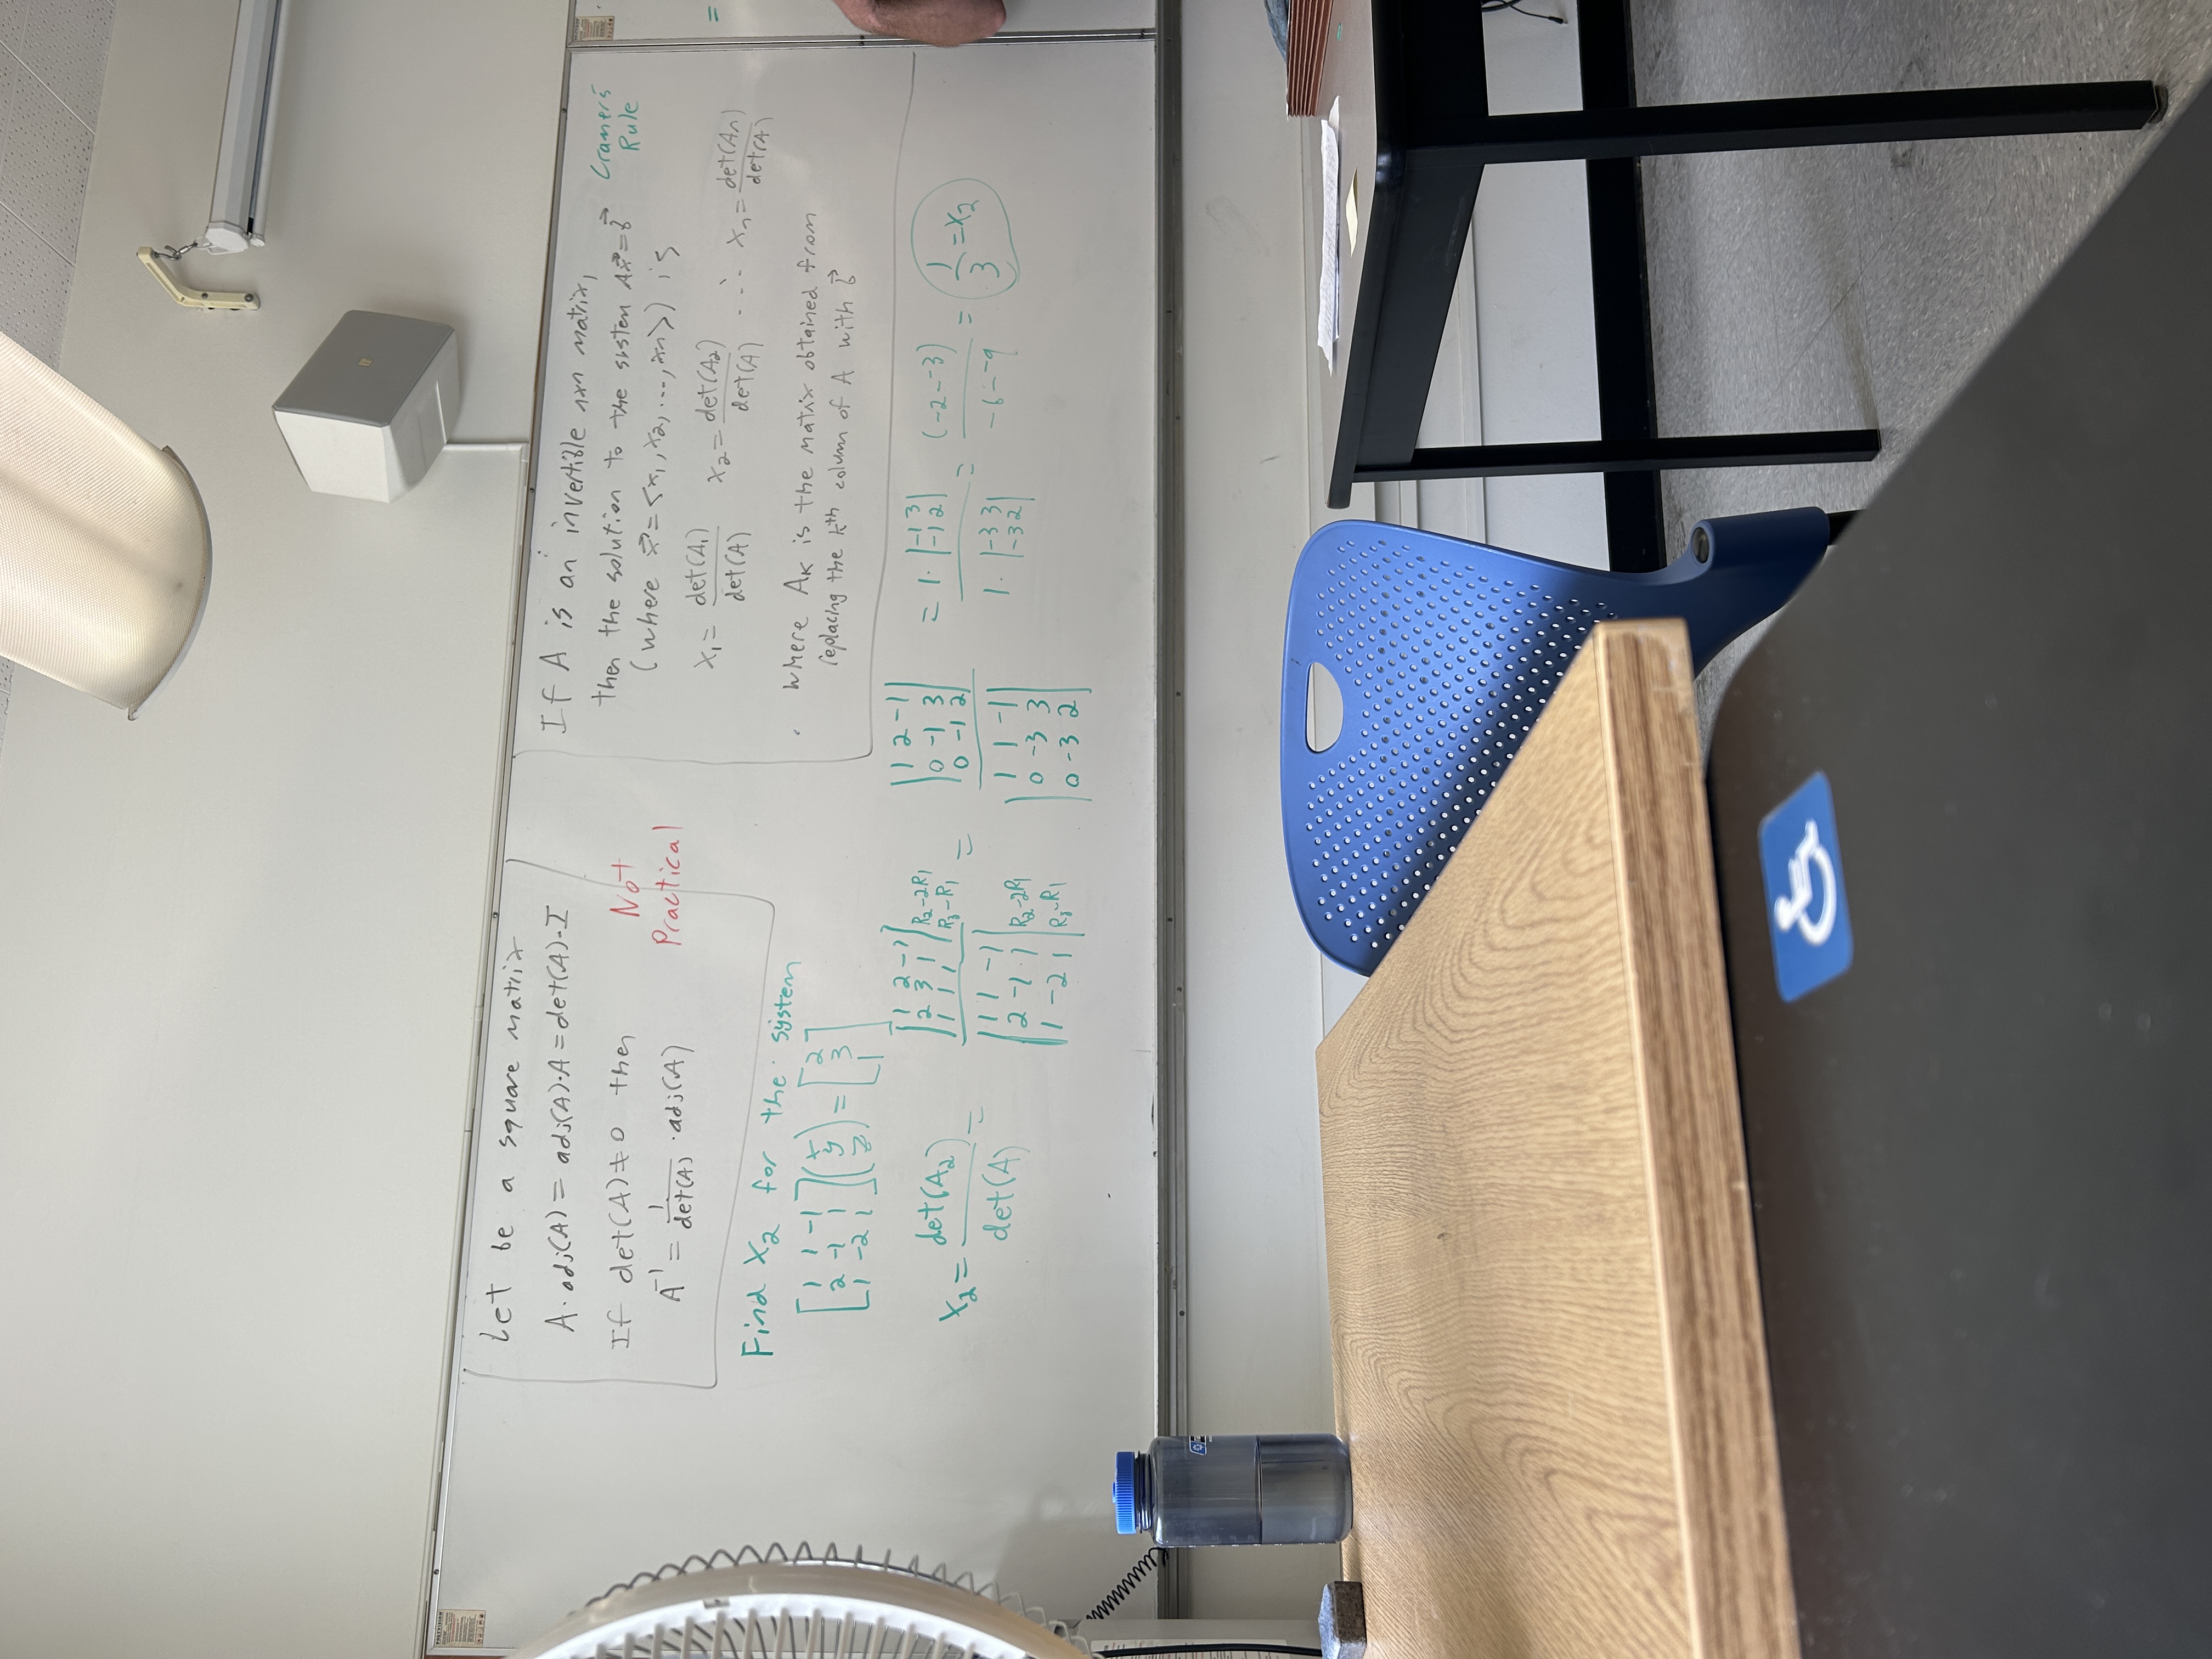 POLYVISION
Let be a square matrix
A · adj(A) = adj(A)·A = det(A)·I
If det(A) ≠ 0 then
A⁻¹ = 1/det(A) · adj(A)
Not
Practical
If A is an invertible nxn matrix,
then the solution to the system Ax⃗ = b⃗
(where x⃗ = <x₁, x₂, ..., xn>) is
x₁ = det(A₁)/det(A) x₂ = det(A₂)/det(A) ... xn = det(An)/det(A)
where Aₖ is the matrix obtained from
replacing the kᵗʰ column of A with b⃗
Cramer's
Rule
=
Find X₂ for the system
[1 1 -1; 2 -1 1; 1 -2 1](x; y; z) = [2; 3; 1]
x₂ = det(A₂)/det(A) = |1 2 -1; 2 3 1; 1 1 1| R₂-2R₁ R₃-R₁ / |1 1 -1; 2 -1 1; 1 -2 1| R₂-2R₁ R₃-R₁ = |1 2 -1; 0 -1 3; 0 -1 2| / |1 1 -1; 0 -3 3; 0 -3 2| = 1·|-1 3; -1 2| / 1·|-3 3; -3 2| = (-2--3) / -6--9 = 1/3 = x₂